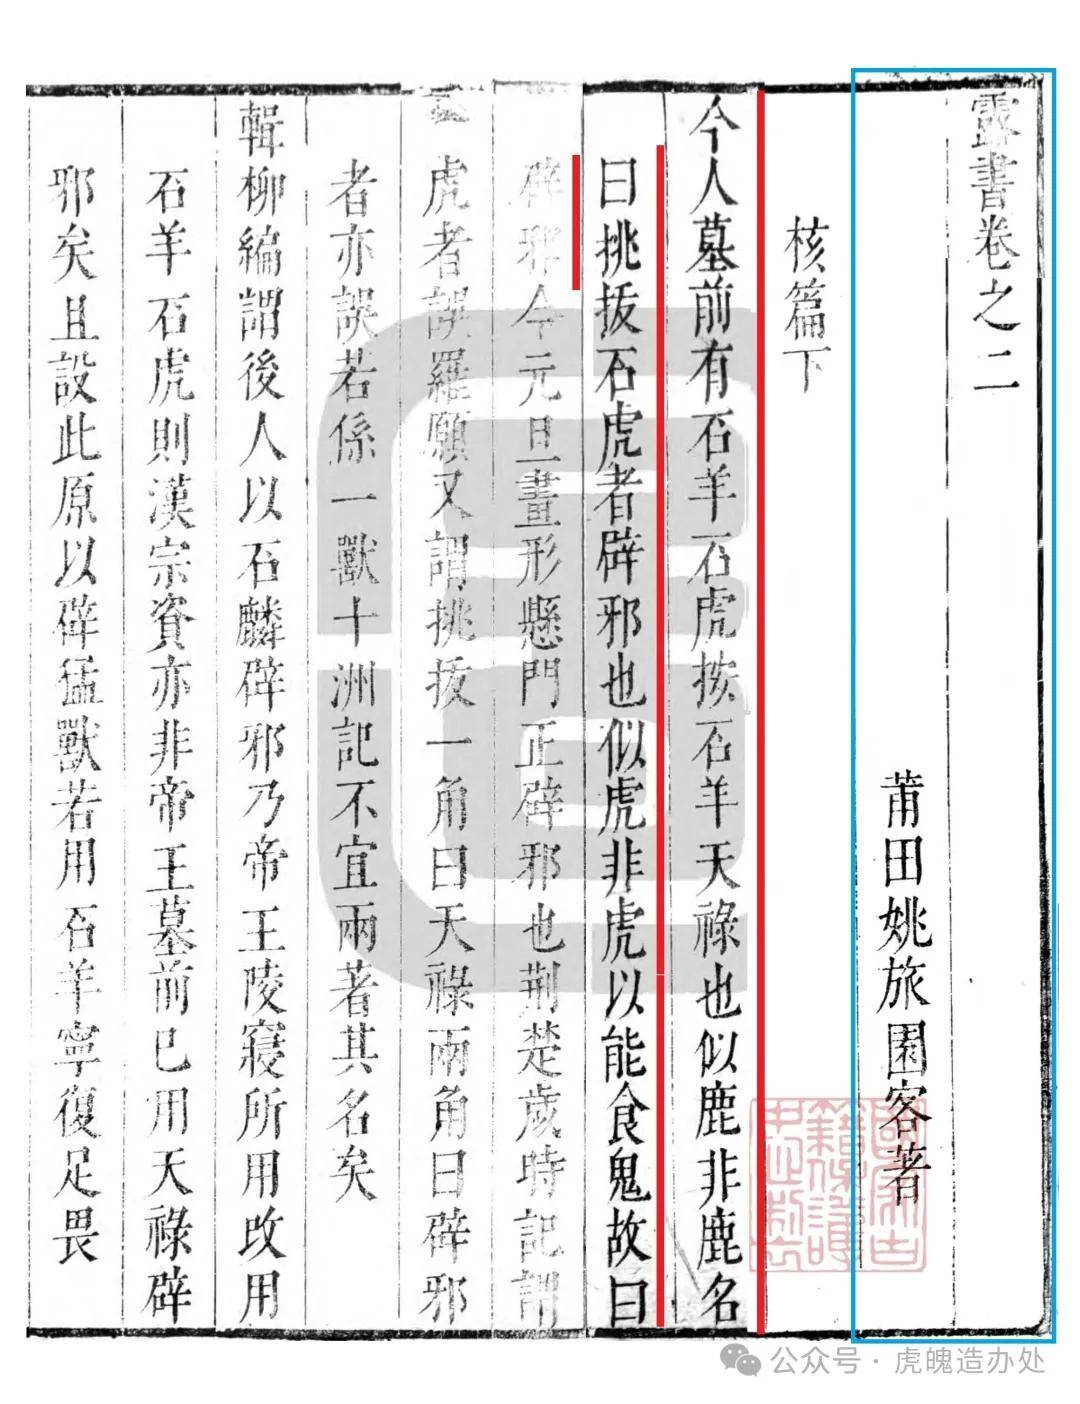 露書卷之二
莆田姚旅園客著
核篇下
今人墓前有石羊石虎按石羊天祿也似鹿非鹿名
曰挑拔石虎者辟邪也似虎非虎以能食鬼故曰
辟邪今元旦畫形懸門正辟邪也荆楚歲時記謂
虎者誤羅願又謂挑拔一角曰天祿兩角曰辟邪
者亦誤若係一獸十洲記不宜兩著其名矣
輯柳編謂後人以石麟辟邪乃帝王陵寢所用改用
石羊石虎則漢宗資亦非帝王墓前已用天祿辟
邪矣且設此原以辟猛獸若用石羊寧復足畏
公众号·虎魄造办处